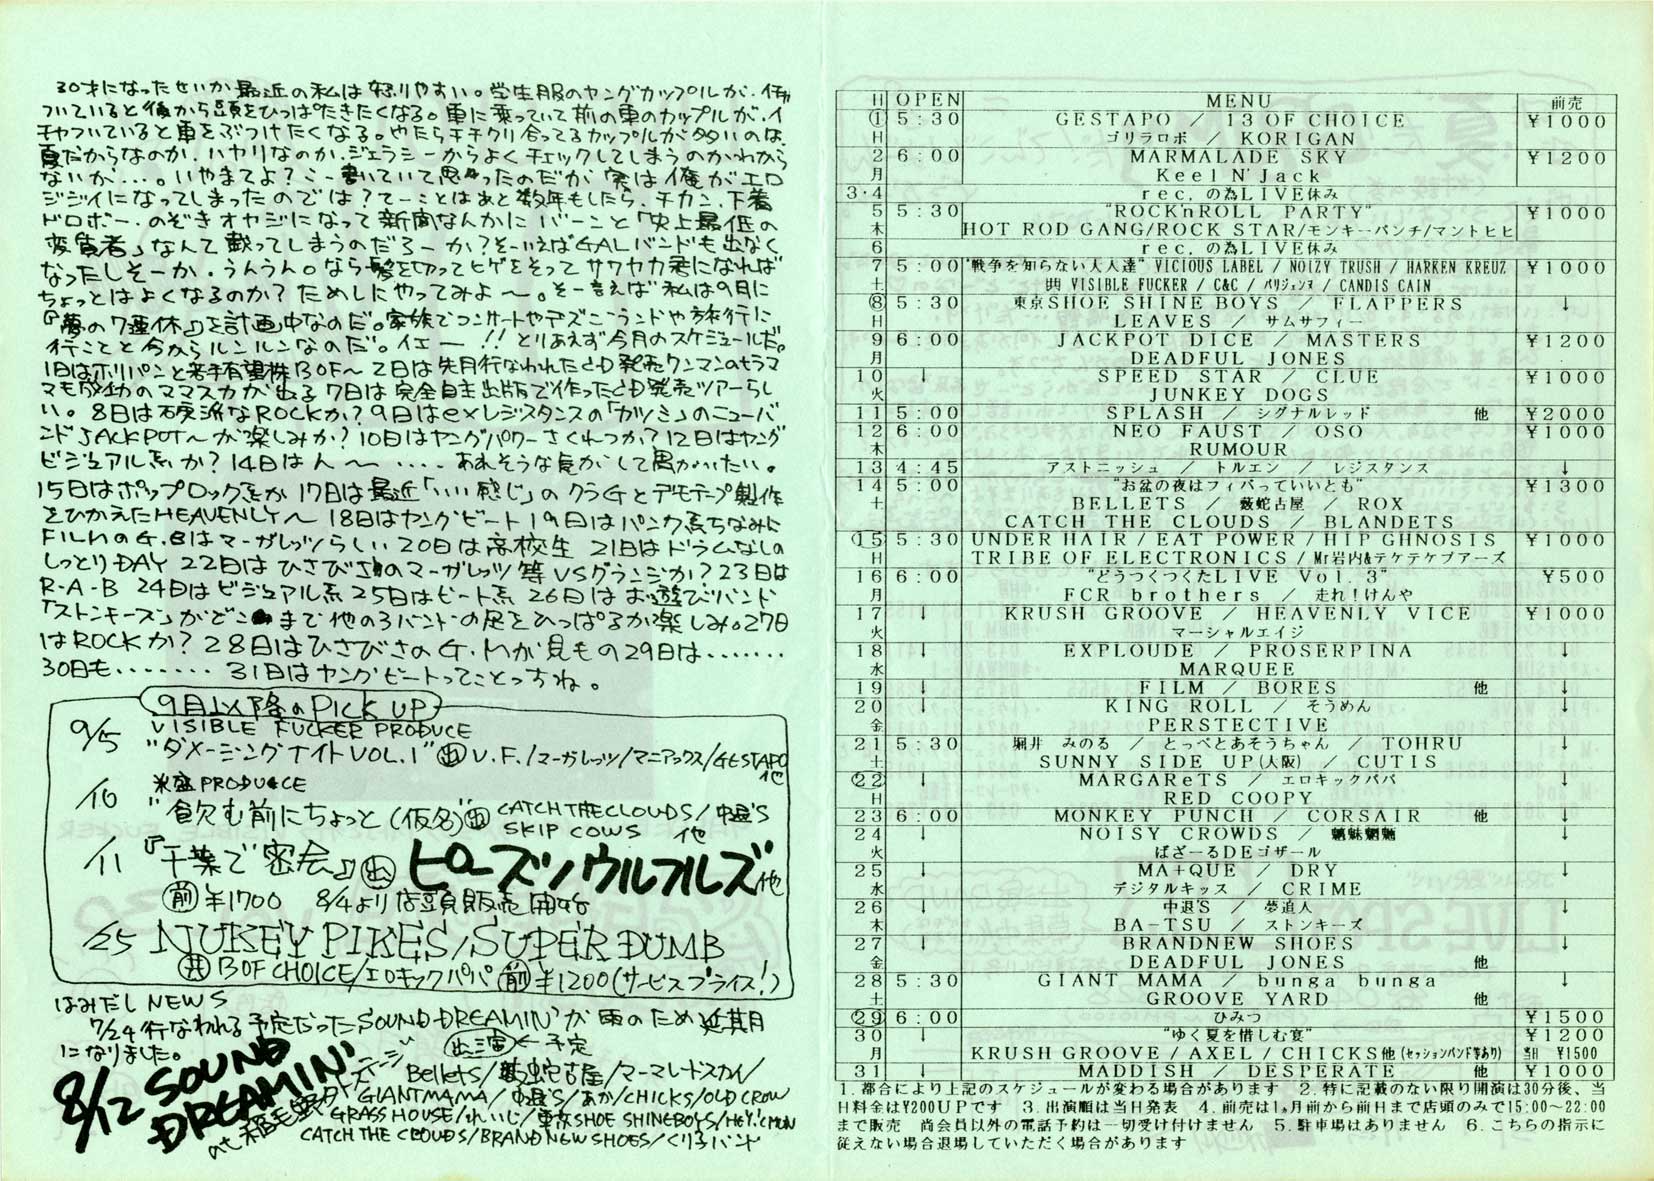 30才になったせいか最近の私は怒りやすい。学生服のヤングカップルが、イチャ
ついていると後から頭をひっぱたきたくなる。車に乗っていて前の車のカップルが、イ
チャついていると車をぶつけたくなる。やたらチチクリ合ってるカップルが多いのな、
夏だからなのか、ハヤリなのか、ジェラシーからよくチェックしてしまうのかわから
ないが…。いやまてよ?こー書いていて思ったのだが実は俺がエロ
ジジイになってしまったのでは?てーことはあと数年もしたら、チカン、下着
ドロボー、のぞきオヤジになって新聞なんかにバーンと「史上最低の
変質者」なんて載ってしまうのだろーか?そーいえばGALバンドも出なく
なったしそーか、うんうん。なら髪を切ってヒゲをそってサワヤカ君になれば
ちょっとはよくなるのか?ためしにやってみよ〜。そー言えば私は9月に
『夢の7連休』を計画中なのだ。家族でコンサートやデズニーランドや旅行に
行こと今からルンルンなのだ。イエー!!とりあえず今月のスケジュールだ。
1日はホリパンと若手有望株BOF〜2日は先月行なわれたCD発売ワンマンのもラマ
マも成功のママスカが出る7日は完全自主出版で作ったCD発売ツアーらし
い。8日は硬派なROCKか?9日はexレジスタンスの「カツミ」のニューバ
ンドJACKPOT〜が楽しみか?10日はヤングパワーさくれつか?12日はヤング
ビジュアル系か?14日はん〜‥‥あれそうな気がして愚がいたい。
15日はポップロック系か17日は最近「いい感じ」のクラGとデモテープ製作
をひかえたHEAVENLY〜18日はヤングビート19日はパンク系ちなみに
FilmのG.Bはマーガレッツらしい20日は高校生 21日はドラムなしの
しっとりDAY 22日はひさびさのマーガレッツ等VSグランジか?23日は
R-A-B 24日はビジュアル系25日はビート系 26日はお遊びバンド
「ストンキーズ」がどこまで他の3バンドの足をひっぱるか楽しみ。27日
はROCKか?28日はひさびさのG.Mが見もの29日は‥‥‥
30日も‥‥‥‥31日はヤングビートってことっすね。
9月以降のPICK UP
9/5 VISIBLE FUCKER PRODUCE
"ダメージングナイトVOL.1" 出 V.F./マーガレッツ/マニアックス/GESTAPO他
/10 米盛PRODUCE
"飲む前にちょっと(仮名)" 出 CATCH THE CLOUDS/中退'S
SKIP COWS 他
/11 『千葉で密会』 出 ピーズ/ソウルフルズ他
前 ¥1700 8/4より店頭販売開始
/25 NUKEY PIKES/SUPER DUMB
共 BOF CHOICE/エロキックパパ 前 ¥1200(サービスプライス!)
はみだしNEWS
7/24行なわれる予定だったSOUND DREAMIN'が雨のため延期
になりました。
8/12 SOUND DREAMIN'
出演←予定
Bellets/藪蛇古屋/マーマレードスカイ/
GIANTMAMA/中退'S/あか/CHICKS/OLD CROW
GRASS HOUSE/れいじ/東京SHOE SHINEBOYS/HEY!C'MON
CATCH THE CLOUDS/BRAND NEW SHOES/くり子バンド
日 OPEN MENU 前売
① 5:30 GESTAPO / 13 OF CHOICE ¥1000
日 ゴリラロボ / KORIGAN
2 6:00 MARMALADE SKY ¥1200
月 Keel N' Jack
3・4 rec.の為LIVE休み
5 5:30 "ROCK'nROLL PARTY" ¥1000
木 HOT ROD GANG/ROCK STAR/モンキーパンチ/マントヒヒ
6 rec.の為LIVE休み
7 5:00 "戦争を知らない大人達" VICIOUS LABEL / NOIZY TRUSH / HARKEN KREUZ ¥1000
土 出 VISIBLE FUCKER / C&C / パリジェンヌ / CANDIS CAIN
⑧ 5:30 東京SHOE SHINE BOYS / FLAPPERS ↓
日 LEAVES / サムサフィー
9 6:00 JACKPOT DICE / MASTERS ¥1200
月 DEADFUL JONES
10 ↓ SPEED STAR / CLUE ¥1000
火 JUNKEY DOGS
11 5:00 SPLASH / シグナルレッド 他 ¥2000
12 6:00 NEO FAUST / OSO ¥1000
木 RUMOUR
13 4:45 アストニッシュ / トルエン / レジスタンス ↓
14 5:00 "お盆の夜はフィバっていいとも" ¥1300
土 BELLETS / 藪蛇古屋 / ROX
CATCH THE CLOUDS / BLANDETS
⑮ 5:30 UNDER HAIR / EAT POWER / HIP GHNOSIS ¥1000
日 TRIBE OF ELECTRONICS / Mr岩内&テケテケブアーズ
16 6:00 "どうつくつくたLIVE Vol.3" ¥500
月 FCR brothers / 走れ!けんや
17 ↓ KRUSH GROOVE / HEAVENLY VICE ¥1000
火 マーシャルエイジ
18 ↓ EXPLOUDE / PROSERPINA ↓
水 MARQUEE
19 ↓ FILM / BORES 他 ↓
20 ↓ KING ROLL / そうめん ↓
金 PERSTECTIVE
21 5:30 堀井 みのる / とっぺとあそうちゃん / TOHRU ↓
土 SUNNY SIDE UP(大阪) / CUTIS
㉒ ↓ MARGAReTS / エロキックパパ ↓
日 RED COOPY
23 6:00 MONKEY PUNCH / CORSAIR 他 ↓
24 ↓ NOISY CROWDS / 魑魅魍魎 ↓
火 ばざーるDEゴザール
25 ↓ MA+QUE / DRY ↓
水 デジタルキッス / CRIME
26 ↓ 中退'S / 夢追人 ↓
木 BA-TSU / ストンキーズ
27 ↓ BRANDNEW SHOES ↓
金 DEADFUL JONES 他
28 5:30 GIANT MAMA / bunga bunga ↓
土 GROOVE YARD 他
㉙ 6:00 ひみつ ¥1500
30 ↓ "ゆく夏を惜しむ宴" ¥1200
月 KRUSH GROOVE / AXEL / CHICKS他(セッションバンド等あり) 当日 ¥1500
31 ↓ MADDISH / DESPERATE 他 ¥1000
1.都合により上記のスケジュールが変わる場合があります 2.特に記載のない限り開演は30分後、当
日料金は¥200UPです 3.出演順は当日発表 4.前売は1ヵ月前から前日まで店頭のみで15:00〜22:00
まで販売 尚会員以外の電話予約は一切受け付けません 5.駐車場はありません 6.こちらの指示に
従えない場合退場していただく場合があります